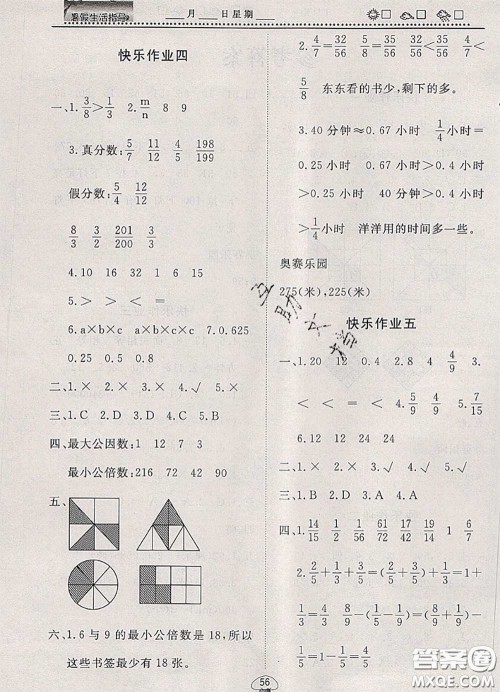 暑假生活指导
____月____日星期____
快乐作业四
一、1. 3/8>1/3 2. m/n 8 9
3.真分数:5/7 11/12 4/5 198/199
假分数:5/4 12/12
8/3 3/2 201/200 3/3
4.10 16 32 1 6 15
5.> < = <
6.a×b×c a×b×c 0.625
0.25 0.5 0.8
二、1.× 2.× 3.√ 4.√ 5.√
三、1.C 2.D 3.A 4.D 5.C
四、最大公因数:1 12 7 3
最小公倍数:216 72 42 90
五、
六、1.6与9的最小公倍数是18,所以
这些书签最少有18张。
2. 4/7=32/56 5/8=35/56 32/56<35/56 4/7<
5/8 东东看的书少,剩下的多。
3.40分钟≈0.67小时 1/4小时=
0.25小时 0.67小时>0.41小时
>0.25小时 40分钟>0.41小时
>1/4小时 洋洋用的时间多一些。
奥赛乐园
275(米),225(米)
快乐作业五
一、1. 20 12 0.4 2.8 4 4/9 3.>
< = < 4. 5/9 4/9 5. 7/15
6.0 12/24 12
二、1.× 2.× 3.√ 4.× 5.√
三、1.C 2.A 3.A 4.C 5.D
四、1. 14/15 1/12 61/66 17/72 19/24 17/14 1 6/7
2. 2/5+1/3+3/5=(2/5+3/5)+1/3=1+
1/3=4/3
1/5+4/9+4/5+5/9=(1/5+4/5)+(4/9+
56
答案圈
MXQE.COM